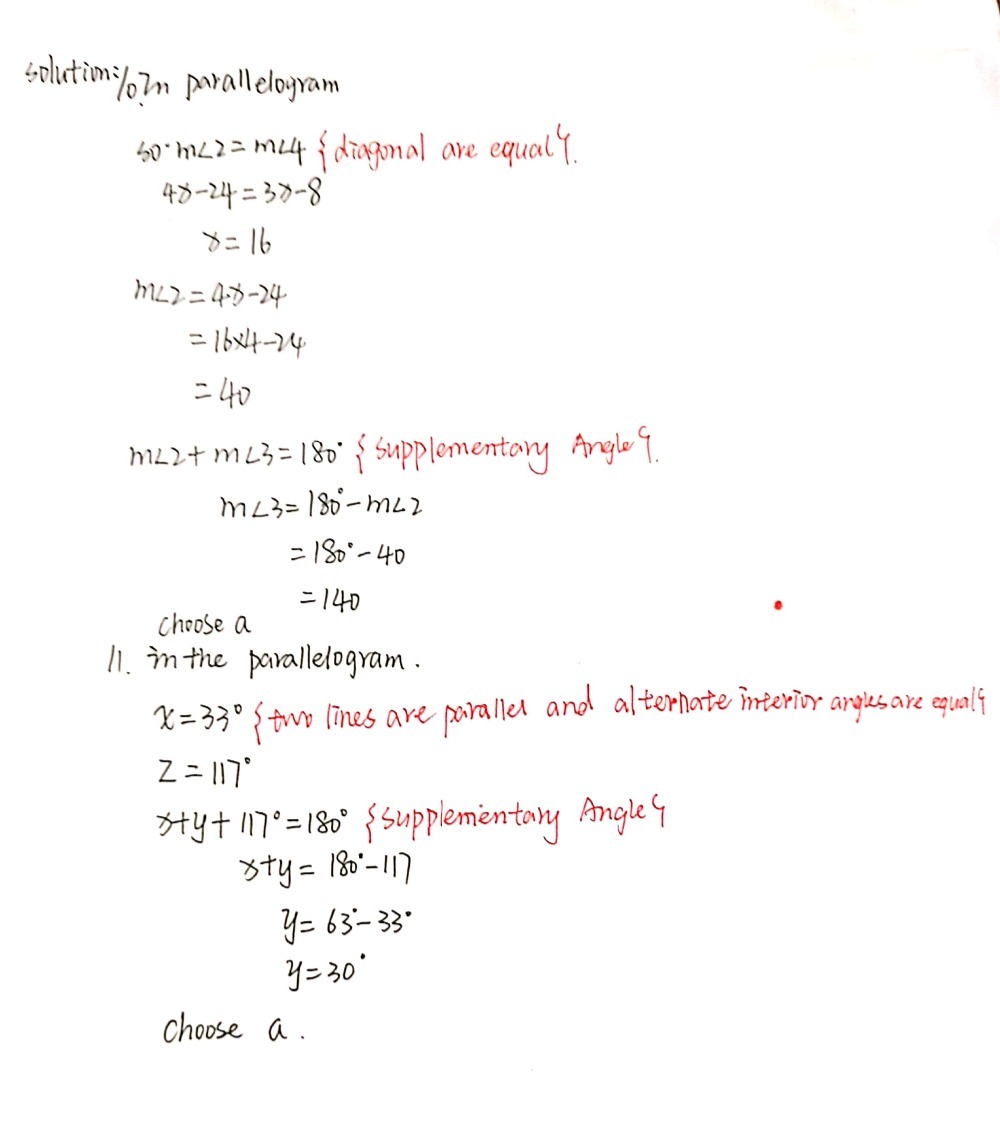 solution: 10. In parallelogram
so. m∠2 = m∠4 {diagonal are equal}.
4x-24 = 3x-8
x = 16
m∠2 = 4x-24
= 16×4-24
= 40
m∠2 + m∠3 = 180° {supplementary Angle}.
m∠3 = 180°-m∠2
= 180°-40
= 140
choose a
11. in the parallelogram.
x = 33° {two lines are parallel and alternate interior angles are equal}
Z = 117°
x+y+117° = 180° {supplementary Angle}
x+y = 180°-117
y = 63°-33°
y = 30°
choose a.